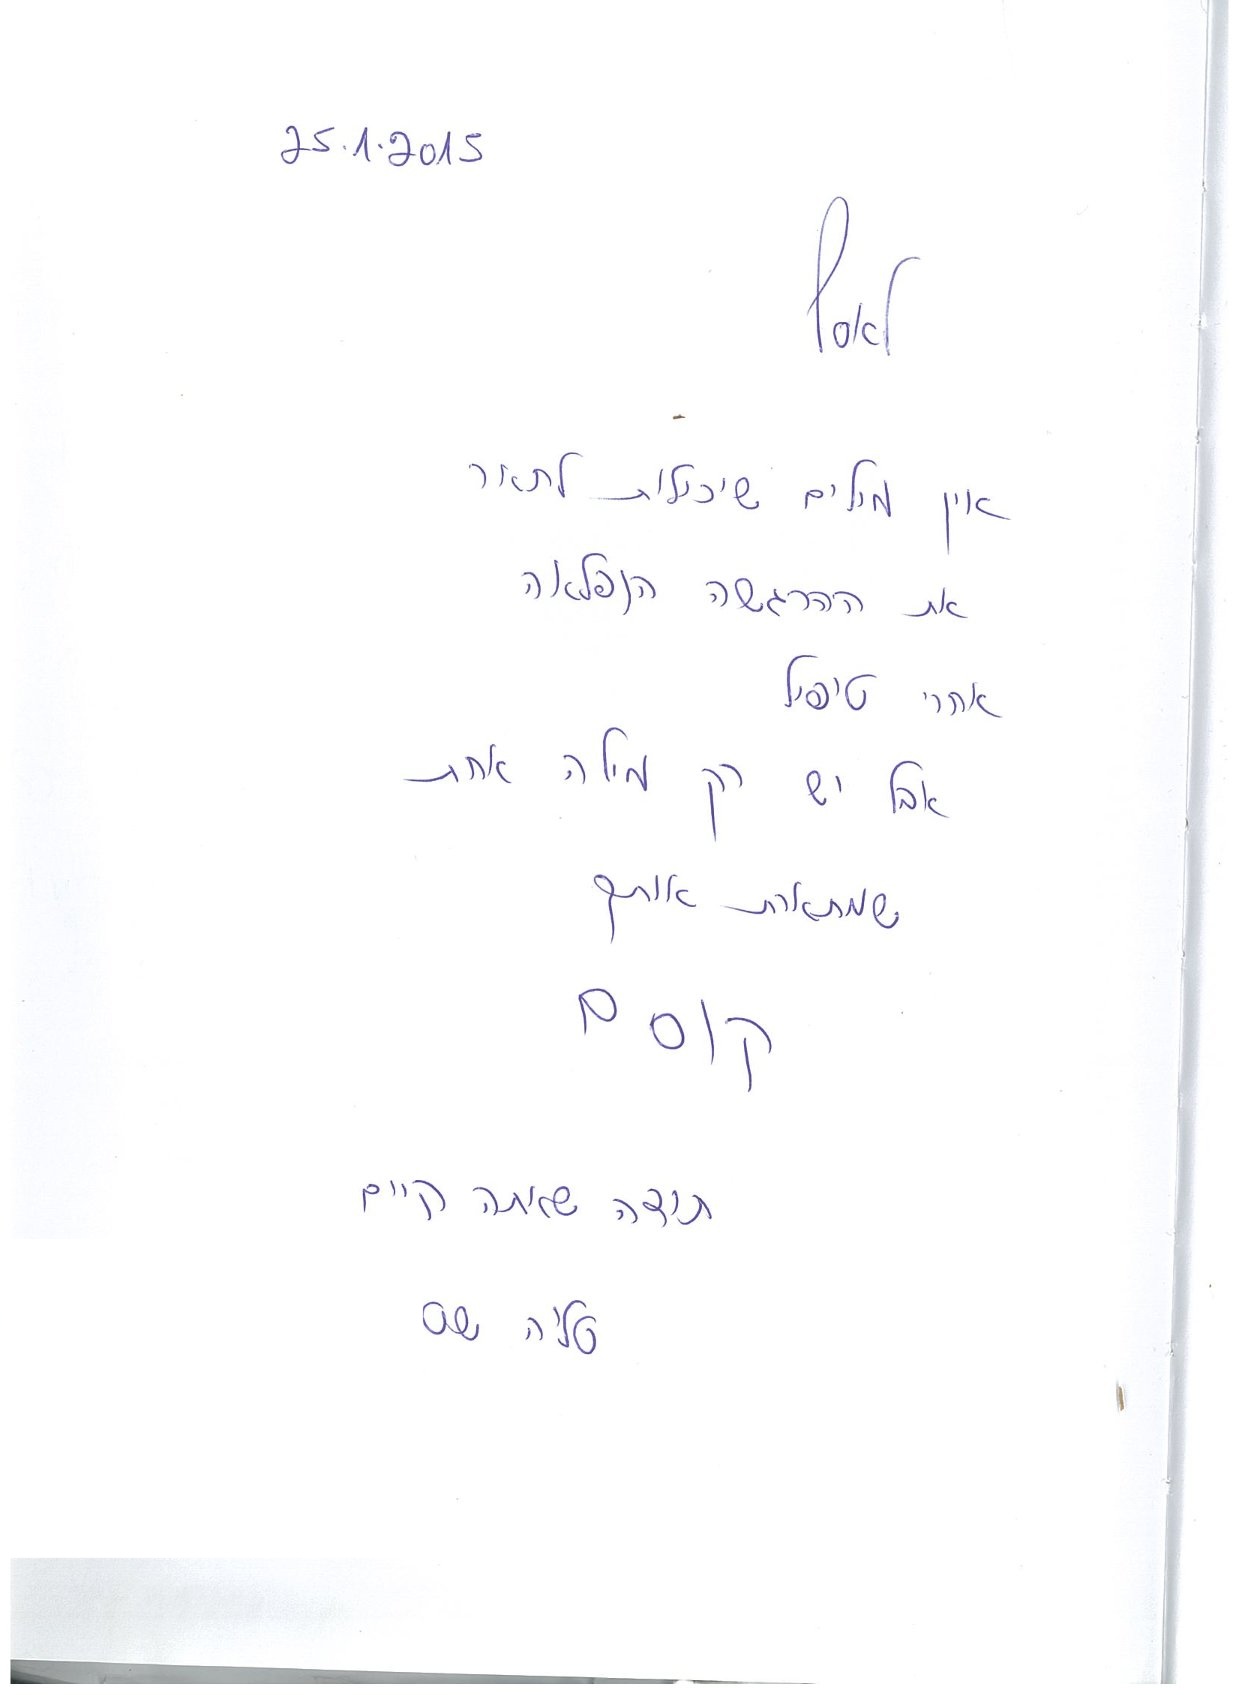 25.1.2015
לאסף
אין מילים שיכולות לתאור
את ההרגשה הנפלאה
אחרי טיפול
אבל יש רק מילה אחת
שמתארת אותך
קוסם
תודה שאתה קיים
טליה שם